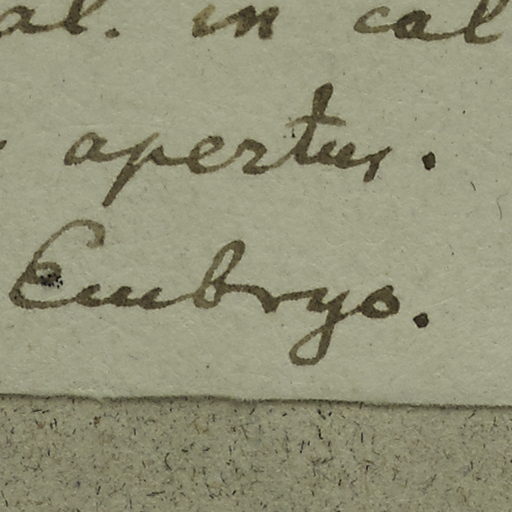 al. in cal
apertus.
Embryo.